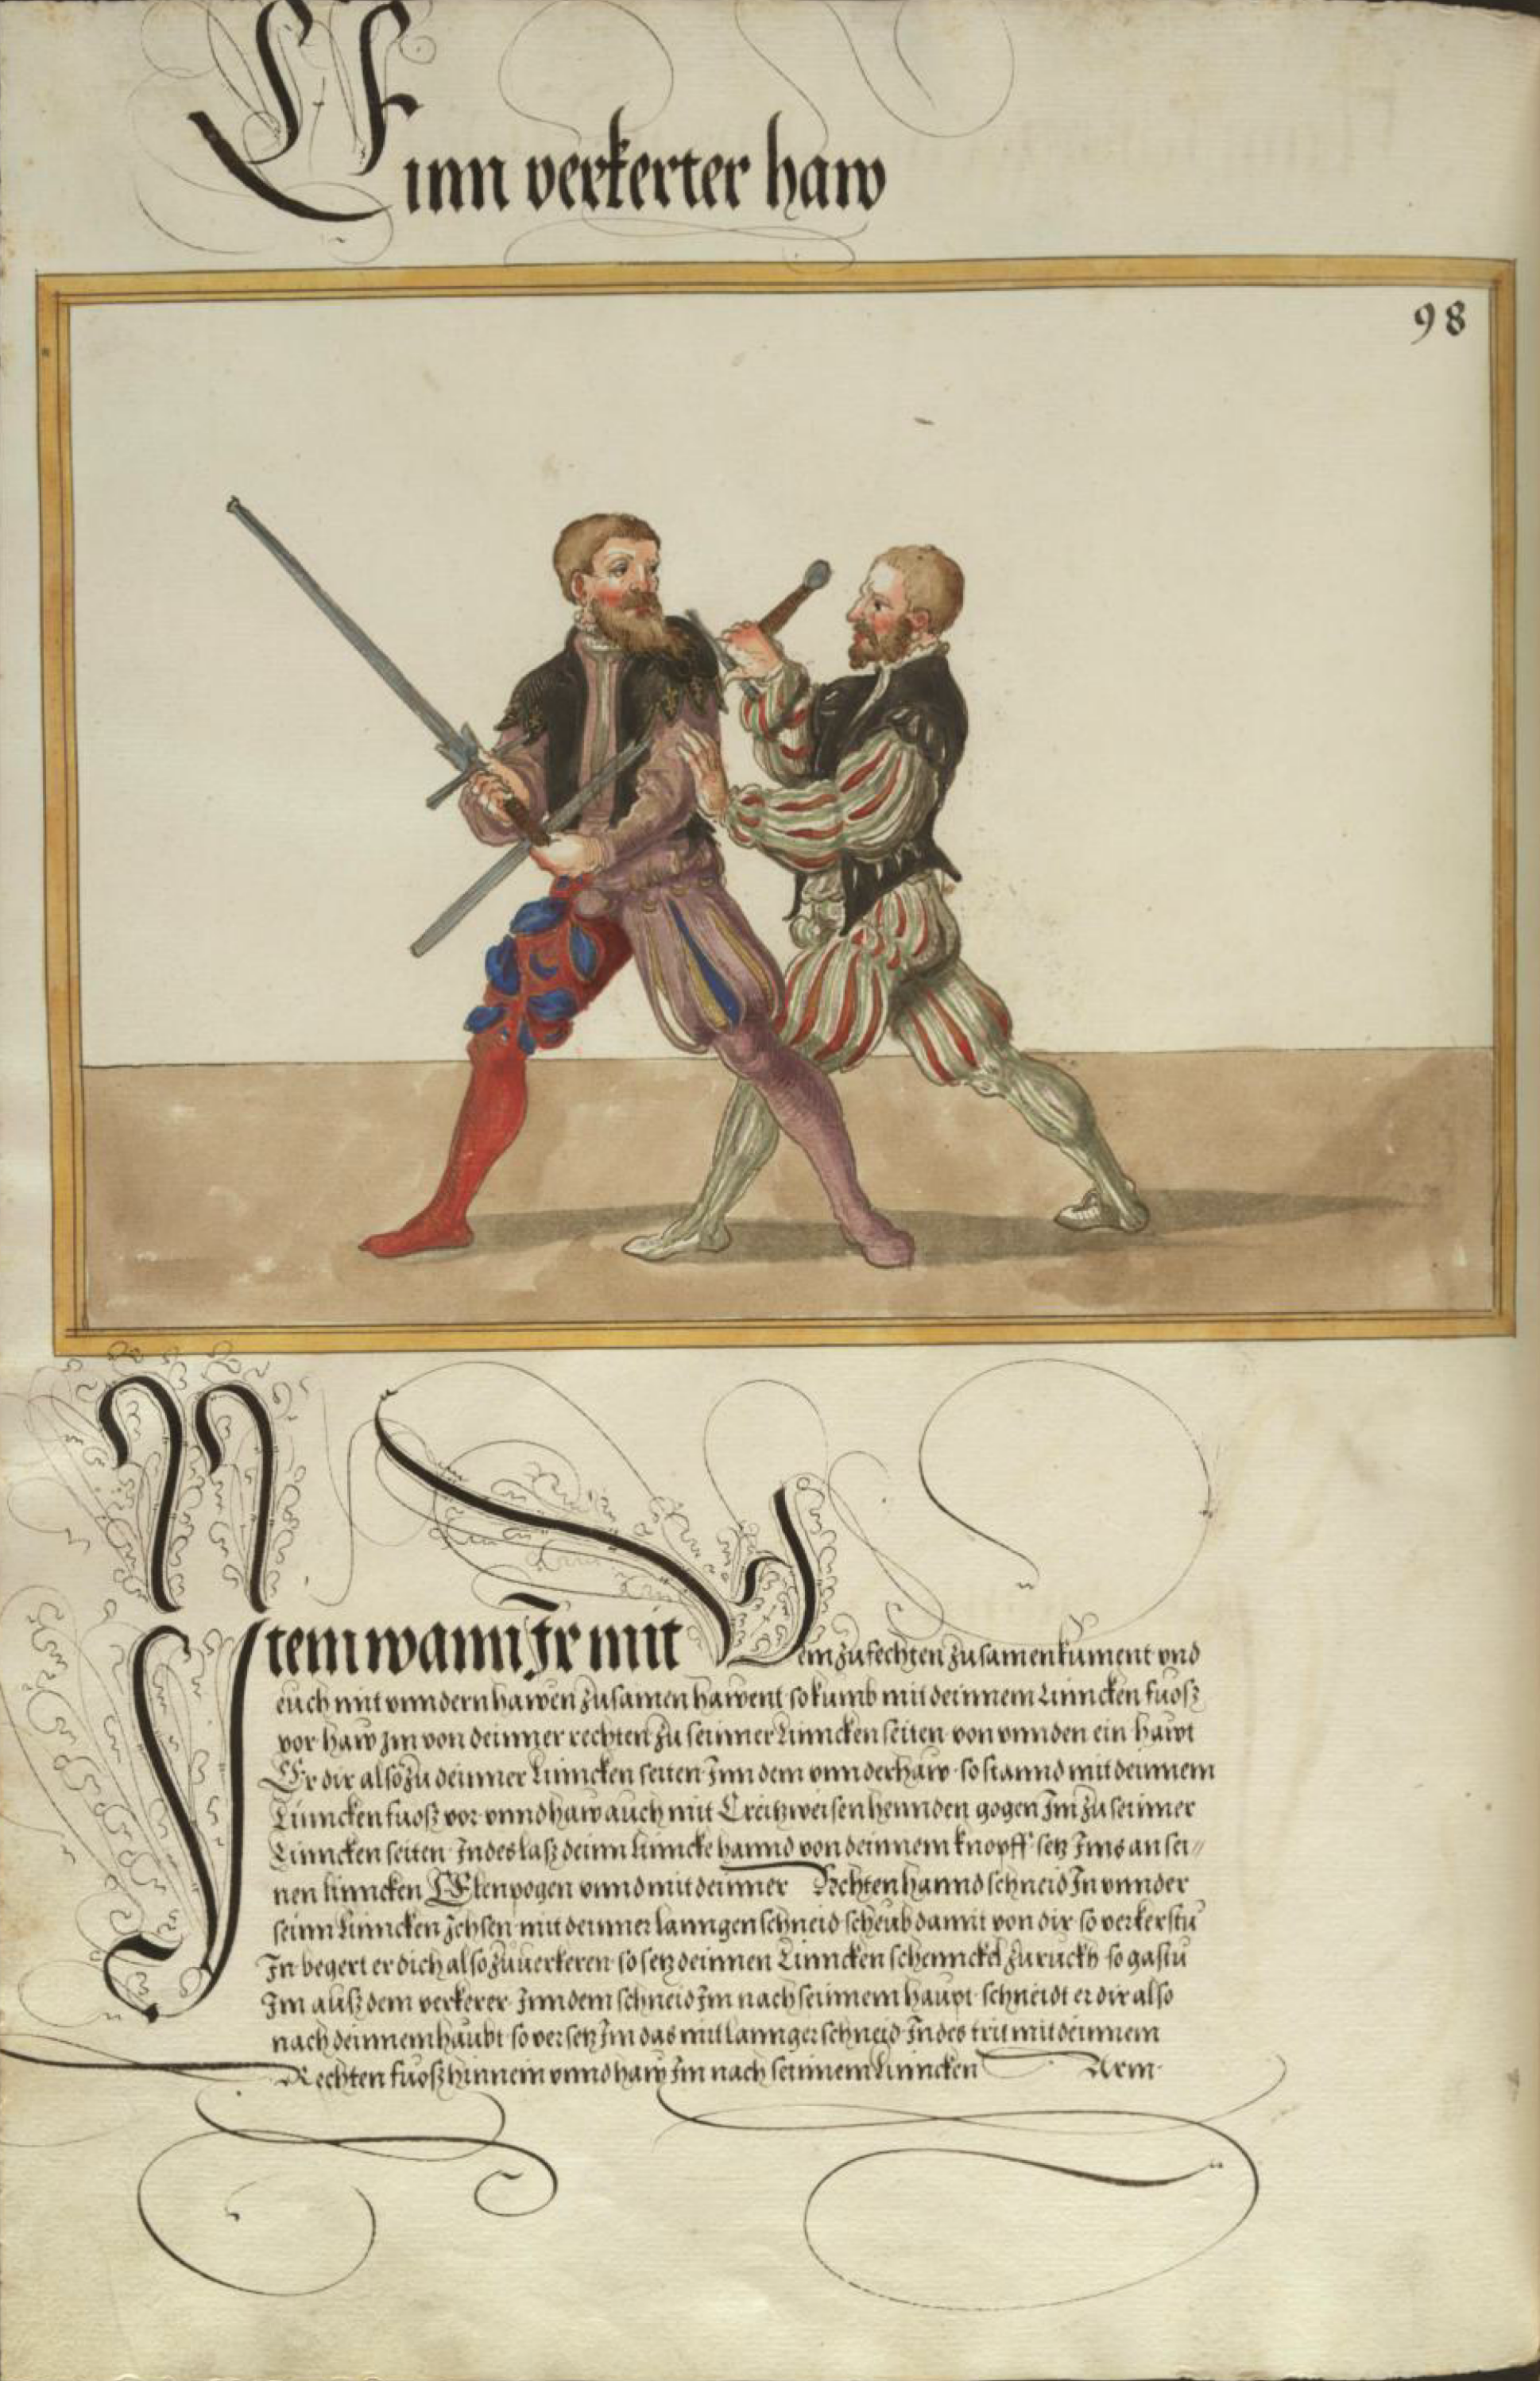 Einn verkerter haw
98
Item wann Ir mit dem zufechten zusamen kument vnd
euch mit vnndern hawen zusamen hawent so kumb mit deinnem Linncken fuosz
vor haw im von deinner rechten zu seinner Linncken seiten von vnnden ein hawt
Er dir also zu deinner Linncken seiten Inn dem vnnderhaw so stannd mit deinnem
Linncken fuosz vor vnnd haw auch mit Creitzweisen hennden gogen Im zu seinner
Linncken seiten Indes lasz deinn Linncke hannd von deinnem knopff setz Ims an sei〃
nen linncken Elenpogen vnnd mit deinner Rechten hannd schneid In vnnder
seinn Linncken Jehsen mit deinner lanngen schneid scheub damit von dir so verkerstu
In begert er dich also zuuerkeren so setz deinnen Linncken schennckel zuruckh so gastu
Im ausz dem verkerer Inn dem schneid Im nach seinnem haupt schneidt er dir also
nach deinnem haubt so versetz Im das mit lannger schneid Indes trit mit deinnem
Rechten fuosz hinnein vnnd haw Im nach seinnem Linncken Arm